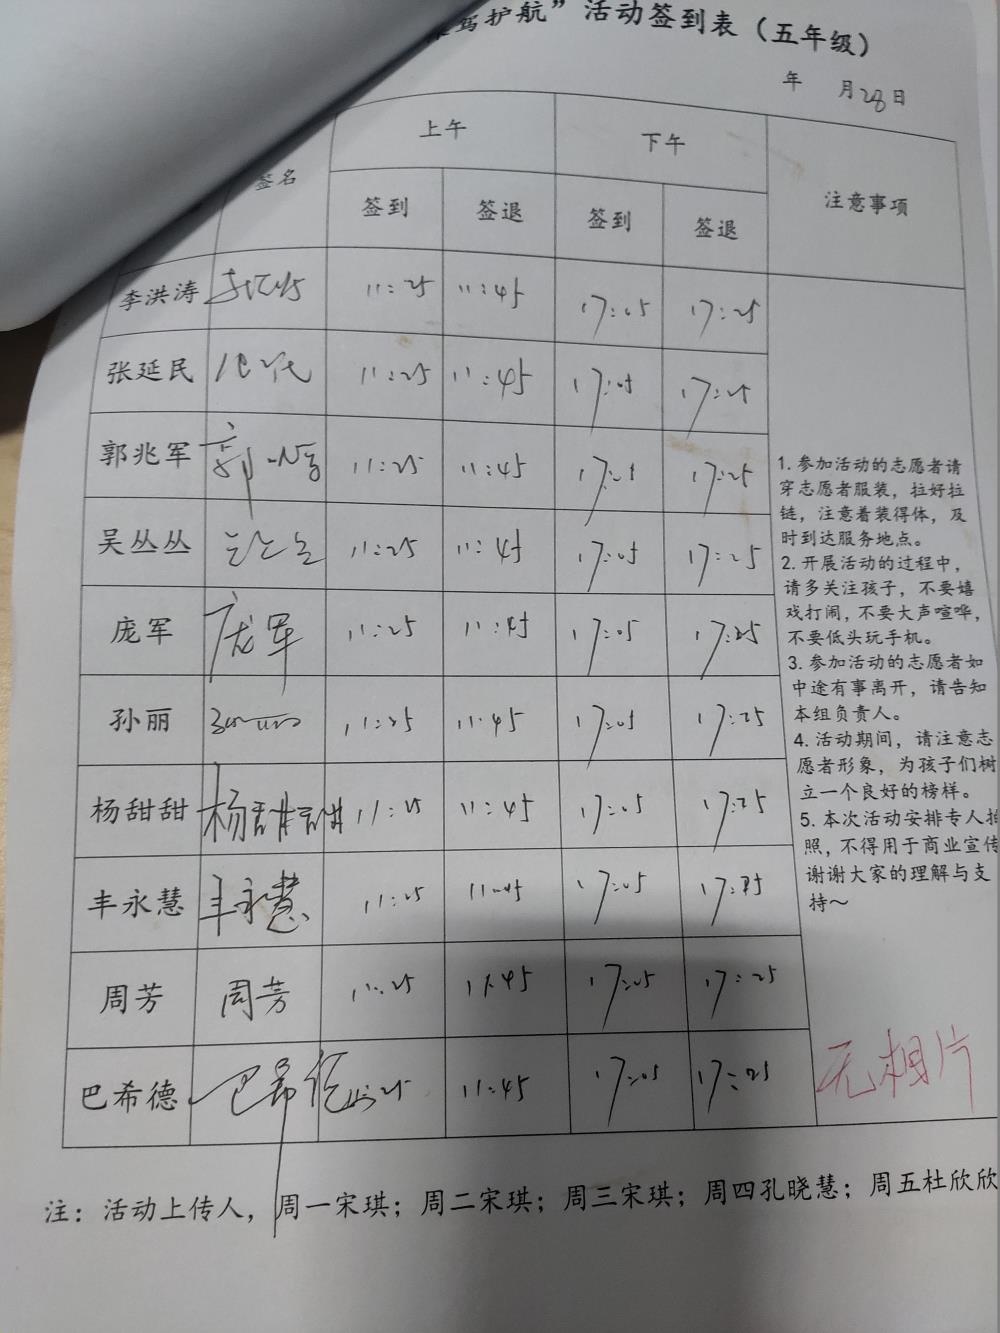 驾护航”活动签到表（五年级）
年 月28日
签名 上午 下午 注意事项
签到 签退 签到 签退
李洪涛 11:25 11:45 17:05 17:25
张延民 11:25 11:45 17:05 17:25
郭兆军 11:25 11:45 17:05 17:25
吴丛丛 11:25 11:45 17:05 17:25
庞军 庞军 11:25 11:45 17:05 17:25
孙丽 11:25 11:45 17:05 17:25
杨甜甜 杨甜甜 11:25 11:45 17:05 17:25
丰永慧 丰永慧 11:25 11:45 17:05 17:25
周芳 周芳 11:25 11:45 17:05 17:25
巴希德 巴希德 11:45 17:05 17:25
1. 参加活动的志愿者请
穿志愿者服装，拉好拉
链，注意着装得体，及
时到达服务地点。
2. 开展活动的过程中，
请多关注孩子，不要嬉
戏打闹，不要大声喧哗，
不要低头玩手机。
3. 参加活动的志愿者如
中途有事离开，请告知
本组负责人。
4. 活动期间，请注意志
愿者形象，为孩子们树
立一个良好的榜样。
5. 本次活动安排专人拍
照，不得用于商业宣传
谢谢大家的理解与支
持～
无相片
注：活动上传人，周一宋琪；周二宋琪；周三宋琪；周四孔晓慧；周五杜欣欣